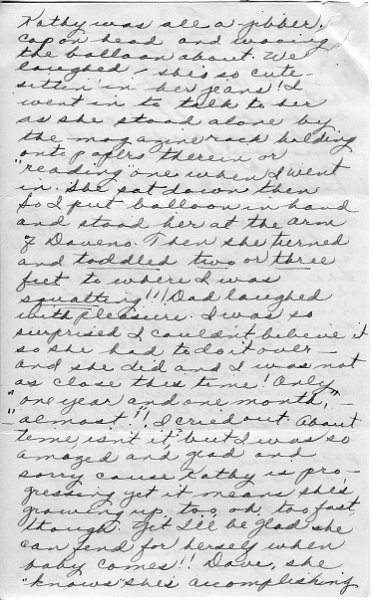 Kathy was all a-jibber,
cap on head and waving
the balloon about. We
laughed - she's so cute -
sittin' in her jeans! I
went in to talk to her
as she stood alone by
the magazine rack holding
onto papers therein or
"reading" one when I went
in. She sat down then
so I put balloon in hand
and stood her at the arm
of Daveno. Then she turned
and toddled two or three
feet to where I was
squatting!!! Dad laughed
with pleasure. I was so
surprised I couldn't believe it
so she had to do it over -
and she did and I was not
as close this time! Only
"one year and one month, -
- almost"!! I cried out. About
time isn't it but I was so
amazed and glad and
sorry cause Kathy is pro-
gressing yet it means she's
growing up, too, oh, too fast,
though. Yet I'll be glad she
can fend for herself when
baby comes!! Dave, she
"knows" she's accomplishing